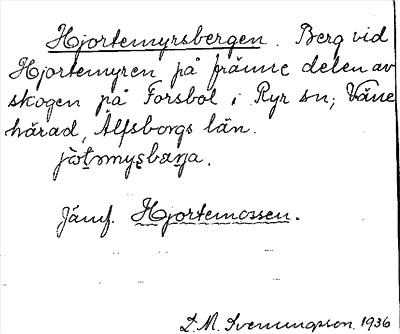 Hjortemyrsbergen. Berg vid
Hjortemyren på främre delen av
skogen på Forsbol i Ryr sn; Väne
härad, Älfsborgs län.
Jämf. Hjortemossen.
D. M. Svenningson. 1936